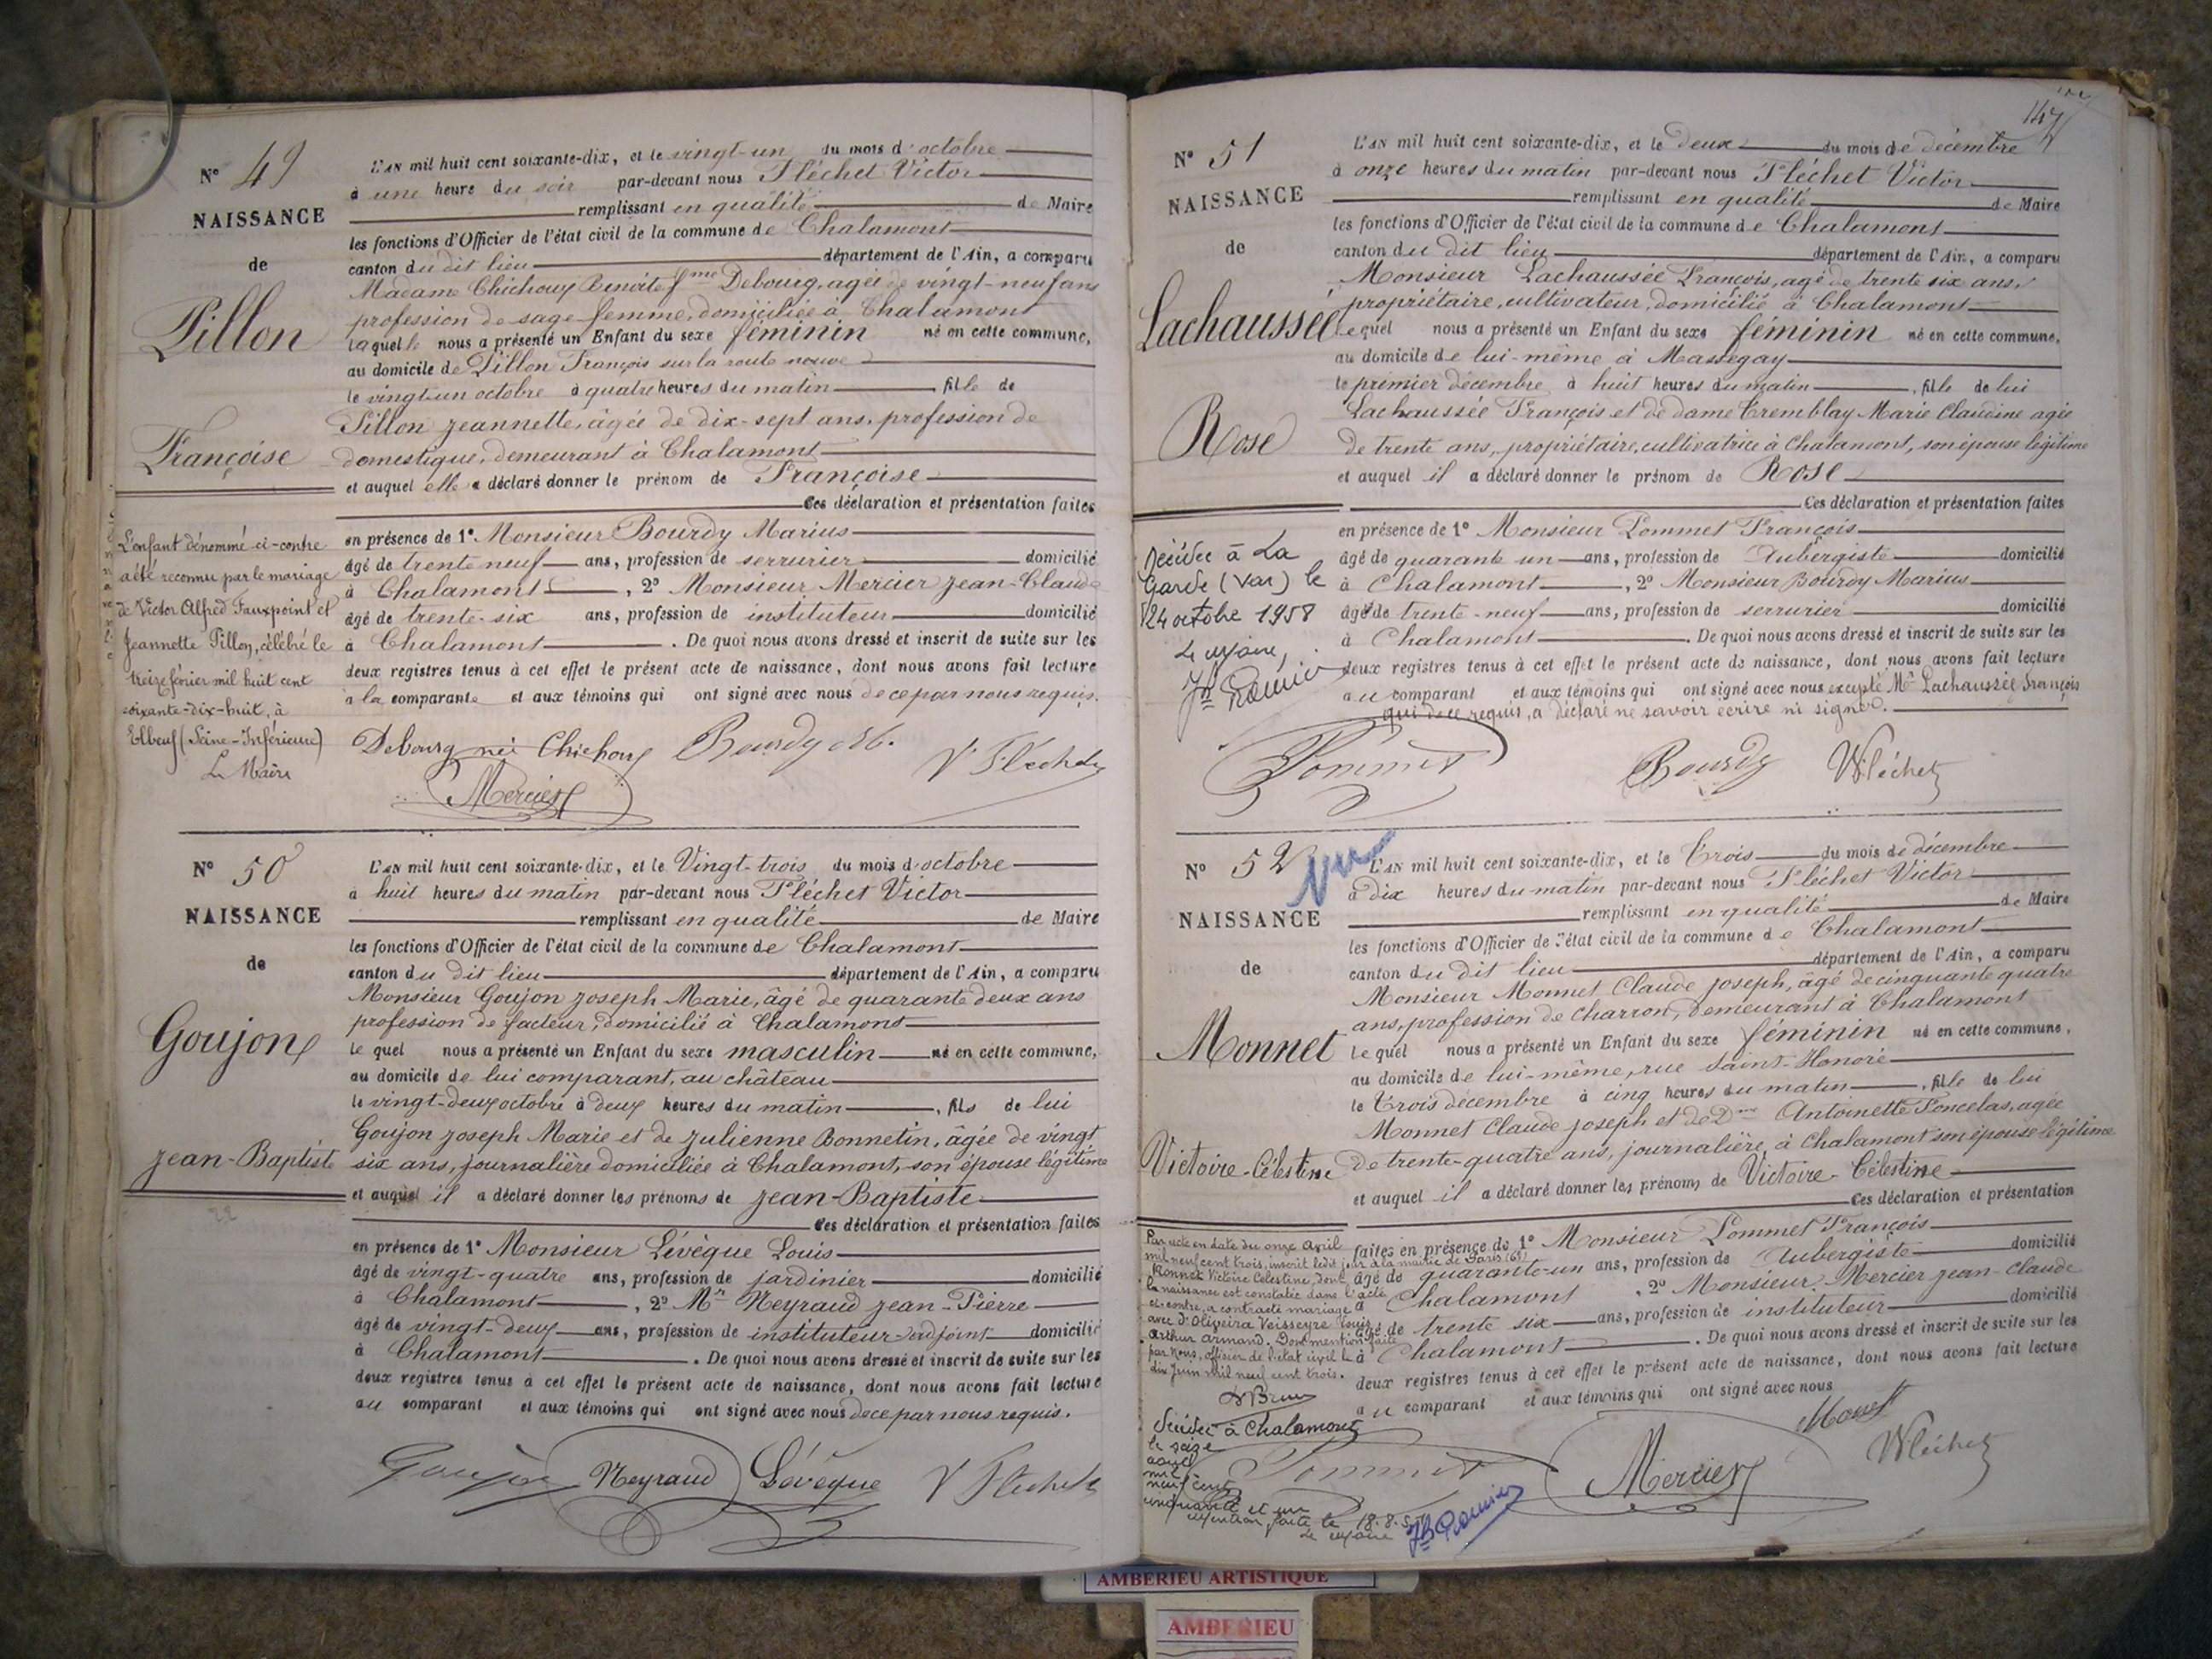 N° 49
NAISSANCE
de
Pillon
Françoise
L'enfant dénommé ci-contre
a été reconnu par le mariage
de Victor Alfred Fauxpoint et
Jeannette Pillon, célébré le
treize février mil huit cent
soixante-dix-huit, à
Elbeuf (Seine-Inférieure)
Le Maire
L'AN mil huit cent soixante-dix, et le vingt-un du mois d'octobre
à une heure du soir par-devant nous Fléchet Victor
remplissant en qualité de Maire
les fonctions d'Officier de l'état civil de la commune de Chalamont
canton du dit lieu département de l'Ain, a comparu
Madame Chichoux Benoite fme Debourg, agée de vingt-neuf ans
profession de sage-femme, domiciliée à Chalamont
laquelle nous a présenté un Enfant du sexe féminin né en cette commune,
au domicile de Pillon François sur la route neuve
le vingt-un octobre à quatre heures du matin fille de
Pillon Jeannette, âgée de dix-sept ans, profession de
domestique, demeurant à Chalamont
et auquel elle a déclaré donner le prénom de Françoise
Ces déclaration et présentation faites
en présence de 1° Monsieur Bourdy Marius
âgé de trente neuf ans, profession de serrurier domicilié
à Chalamont, 2° Monsieur Mercier Jean-Claude
âgé de trente-six ans, profession de instituteur domicilié
à Chalamont. De quoi nous avons dressé et inscrit de suite sur les
deux registres tenus à cet effet le présent acte de naissance, dont nous avons fait lecture
à la comparante et aux témoins qui ont signé avec nous de ce par nous requis.
Debourg née Chichoux Bourdy V Fléchet
Mercier
N° 50
NAISSANCE
de
Goujon
Jean-Baptiste
L'AN mil huit cent soixante-dix, et le Vingt-trois du mois d'octobre
à huit heures du matin par-devant nous Fléchet Victor
remplissant en qualité de Maire
les fonctions d'Officier de l'état civil de la commune de Chalamont
canton du dit lieu département de l'Ain, a comparu
Monsieur Goujon Joseph Marie, âgé de quarante deux ans
profession de facteur, domicilié à Chalamont
le quel nous a présenté un Enfant du sexe masculin né en cette commune,
au domicile de lui comparant, au château
le vingt-deux octobre à deux heures du matin, fils de lui
Goujon Joseph Marie et de Julienne Bonnetin, âgée de vingt
six ans, journalière domiciliée à Chalamont, son épouse légitime
et auquel il a déclaré donner les prénoms de Jean-Baptiste
Ces déclaration et présentation faites
en présence de 1° Monsieur Lévêque Louis
âgé de vingt-quatre ans, profession de jardinier domicilié
à Chalamont, 2° Mr Neyraud Jean-Pierre
âgé de vingt-deux ans, profession de instituteur-adjoint domicilié
à Chalamont. De quoi nous avons dressé et inscrit de suite sur les
deux registres tenus à cet effet le présent acte de naissance, dont nous avons fait lecture
au comparant et aux témoins qui ont signé avec nous de ce par nous requis.
Goujon Neyraud Lévêque V Fléchet
147
N° 51
NAISSANCE
de
Lachaussée
Rose
Décédée à La
Garde (Var) le
24 octobre 1958
Le Maire,
L'AN mil huit cent soixante-dix, et le deux du mois de décembre
à onze heures du matin par-devant nous Fléchet Victor
remplissant en qualité de Maire
les fonctions d'Officier de l'état civil de la commune de Chalamont
canton du dit lieu département de l'Ain, a comparu
Monsieur Lachaussée François, agé de trente six ans,
propriétaire, cultivateur, domicilié à Chalamont
lequel nous a présenté un Enfant du sexe féminin né en cette commune,
au domicile de lui-même à Massegay
le premier décembre à huit heures du matin, fille de lui
Lachaussée François et de dame Tremblay Marie Claudine agée
de trente ans, propriétaire, cultivatrice à Chalamont, son épouse légitime
et auquel il a déclaré donner le prénom de Rose
Ces déclaration et présentation faites
en présence de 1° Monsieur Pommet François
âgé de quarante un ans, profession de Aubergiste domicilié
à Chalamont, 2° Monsieur Bourdy Marius
âgé de trente-neuf ans, profession de serrurier domicilié
à Chalamont. De quoi nous avons dressé et inscrit de suite sur les
deux registres tenus à cet effet le présent acte de naissance, dont nous avons fait lecture
au comparant et aux témoins qui ont signé avec nous excepté Mr Lachaussée François
qui de ce requis, a déclaré ne savoir écrire ni signer.
Pommet Bourdy V Fléchet
N° 52
NAISSANCE
de
Monnet
Victoire-Célestine
Par acte en date du onze avril
mil neuf cent trois, inscrit ledit jour à la mairie de Paris (6e)
Monnet Victoire Célestine, dont
la naissance est constatée dans l'acte
ci-contre, a contracté mariage
avec d'Oliveira Veisseyre Louis
Arthur Armand. Dont mention faite
par Nous, officier de l'état civil le
dix Juin mil neuf cent trois.
Décédée à Chalamont
le seize
août
mil
neuf cent
cinquante et un
mention faite le 18.8.51
Le Maire
L'AN mil huit cent soixante-dix, et le Trois du mois de décembre
à dix heures du matin par-devant nous Fléchet Victor
remplissant en qualité de Maire
les fonctions d'Officier de l'état civil de la commune de Chalamont
canton du dit lieu département de l'Ain, a comparu
Monsieur Monnet Claude Joseph, âgé de cinquante quatre
ans, profession de charron, demeurant à Chalamont
lequel nous a présenté un Enfant du sexe féminin né en cette commune,
au domicile de lui-même, rue Saint-Honoré
le Trois décembre à cinq heures du matin, fille de lui
Monnet Claude Joseph et de Dme Antoinette Poncelas, agée
de trente-quatre ans, journalière, à Chalamont son épouse légitime
et auquel il a déclaré donner les prénoms de Victoire-Célestine
Ces déclaration et présentation
faites en présence de 1° Monsieur Pommet François
âgé de quarante-un ans, profession de Aubergiste domicilié
à Chalamont, 2° Monsieur Mercier Jean-Claude
âgé de trente six ans, profession de instituteur domicilié
à Chalamont. De quoi nous avons dressé et inscrit de suite sur les
deux registres tenus à cet effet le présent acte de naissance, dont nous avons fait lecture
au comparant et aux témoins qui ont signé avec nous
Pommet Mercier Monet V Fléchet
AMBERIEU ARTISTIQUE
AMBERIEU